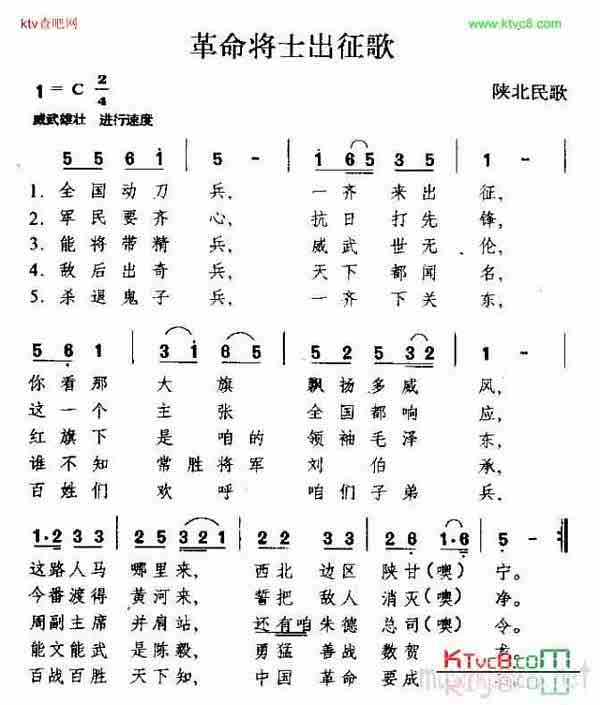 ktv查吧网
www.ktvc8.com
革命将士出征歌
1=C 2/4
陕北民歌
威武雄壮 进行速度
5 5 6 1 5 - 1 6 5 3 5 1 -
1. 全国动刀兵, 一齐来出征,
2. 军民要齐心, 抗日打先锋,
3. 能将带精兵, 威武世无伦,
4. 敌后出奇兵, 天下都闻名,
5. 杀退鬼子兵, 一齐下关东,
5 6 1 3 1 6 5 3 3 5 3 2 1 -
你看那大旗飘扬多威风,
这一个主张全国都响应,
红旗下是咱的领袖毛泽东,
谁不知常胜将军刘伯承,
百姓们欢呼咱们子弟兵,
1·2 3 3 2 5 3 2 1 2 2 3 3 2 6 1·6 5 -
这路人马哪里来, 西北边区陕甘(噢)宁。
今番渡得黄河来, 誓把敌人消灭(噢)净。
周副主席并肩站, 还有咱朱德总司(噢)令。
能文能武是陈毅, 勇猛善战数贺龙。
百战百胜天下知, 中国革命要成
KTvc8.com